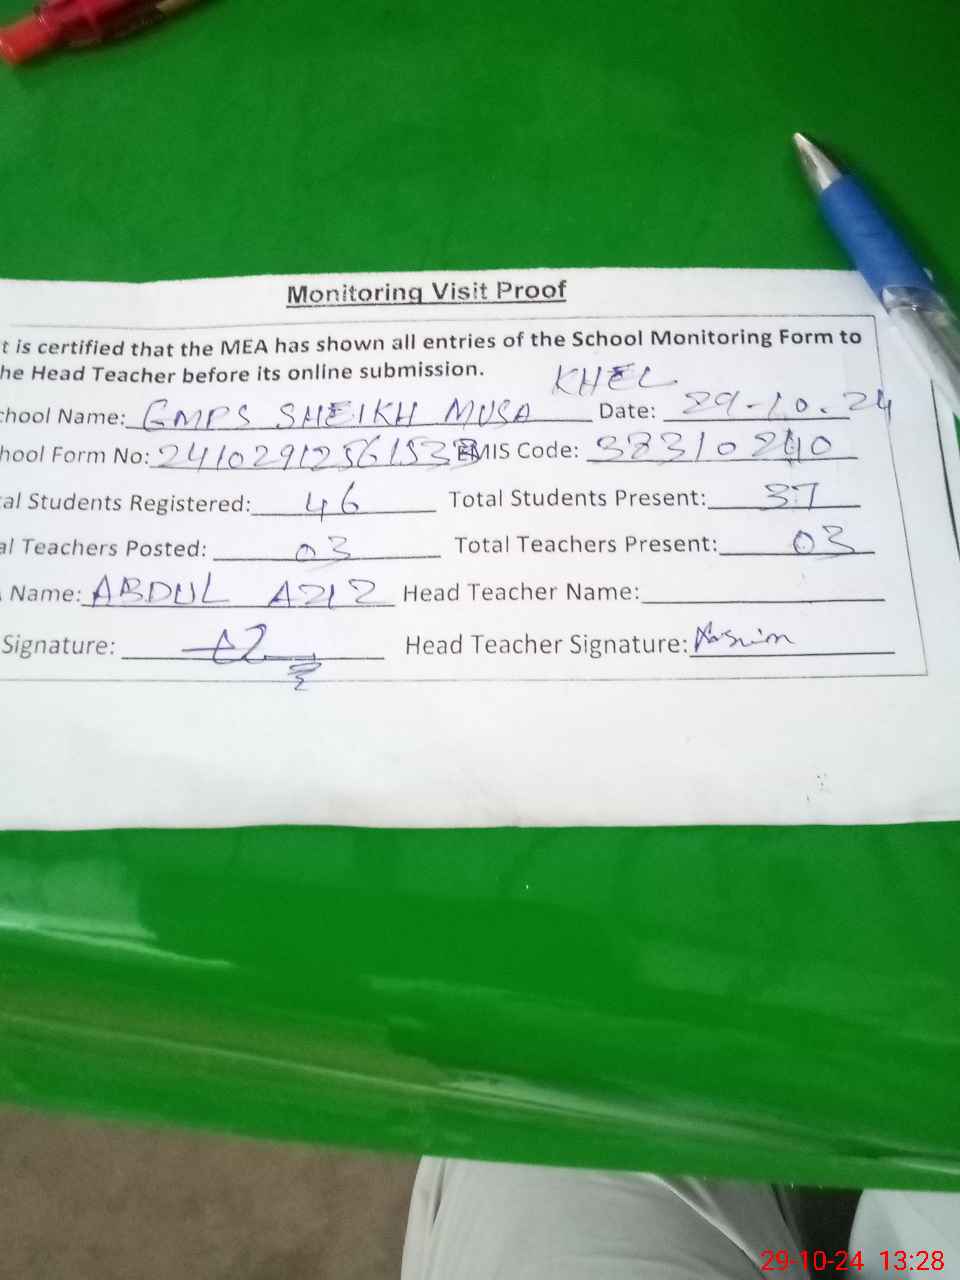 Monitoring Visit Proof
t is certified that the MEA has shown all entries of the School Monitoring Form to
he Head Teacher before its online submission.
KHEL
chool Name: GMPS SHEIKH MUSA Date: 29-10-24
hool Form No: EMIS Code:
al Students Registered: 46 Total Students Present: 37
al Teachers Posted: 03 Total Teachers Present: 03
Name: ABDUL AZIZ Head Teacher Name:
Signature: AZ Head Teacher Signature:
29-10-24 13:28